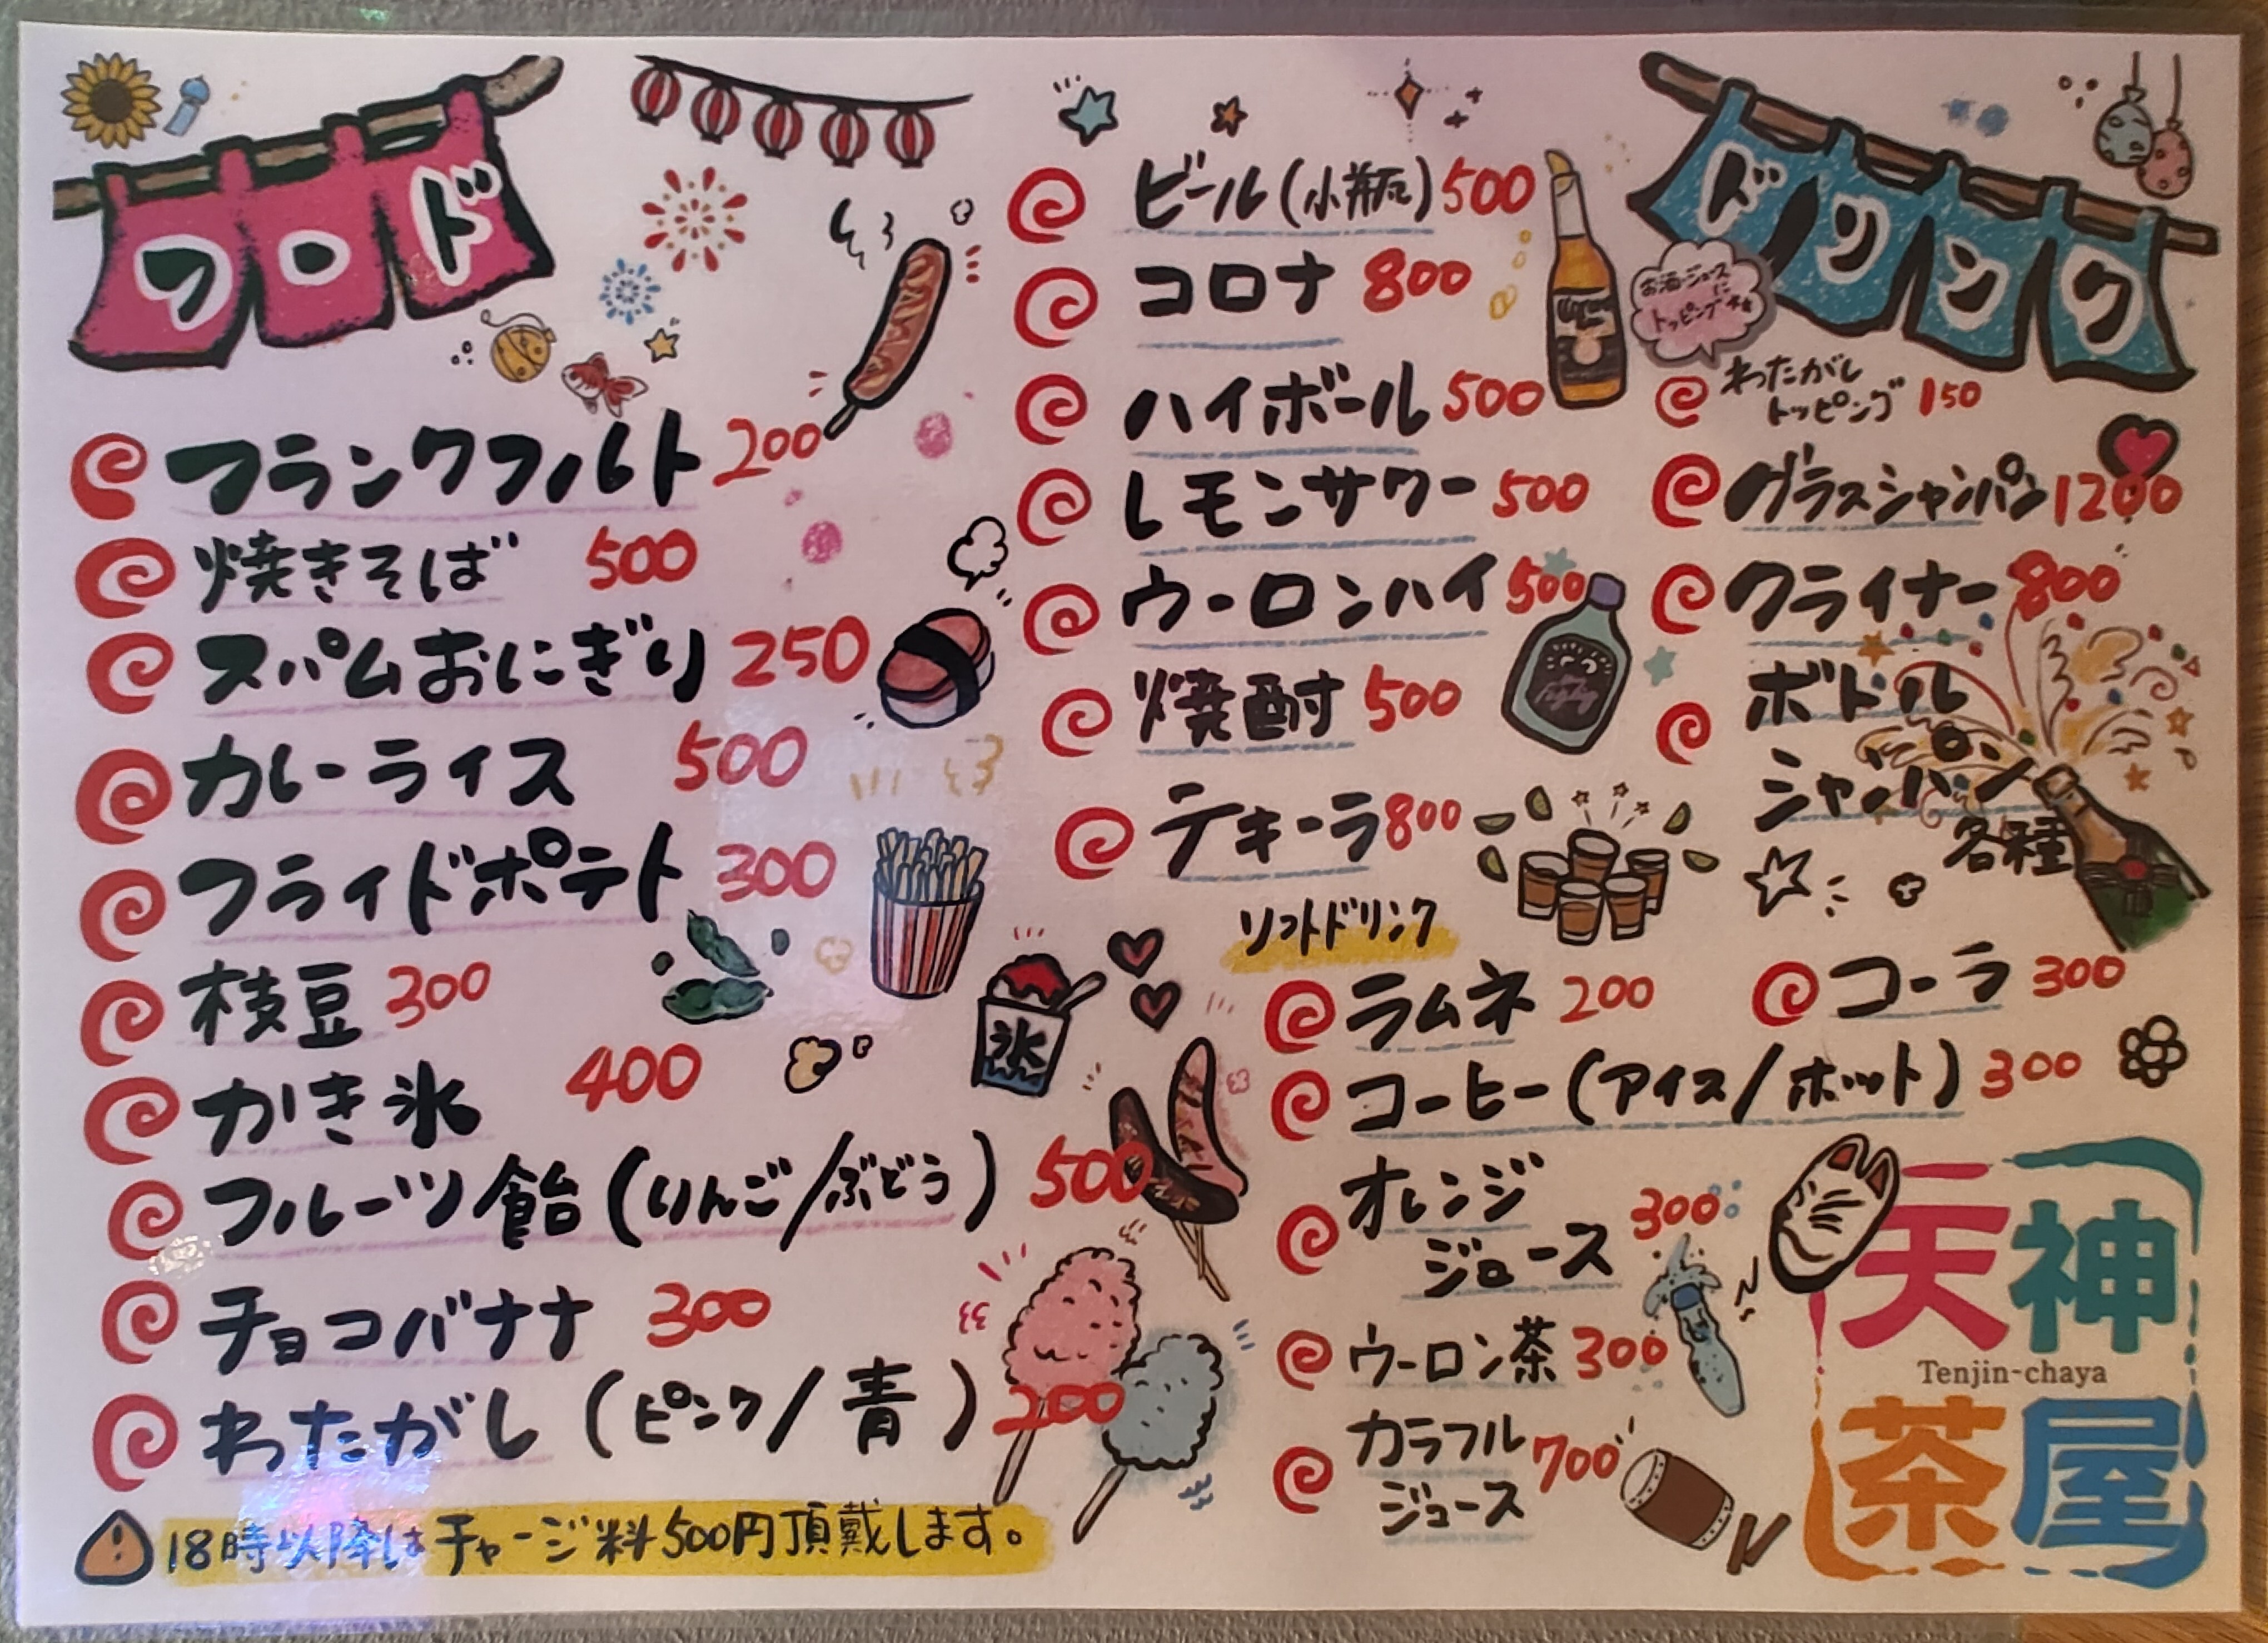 フロド
フランクフルト 200
焼きそば 500
スパムおにぎり 250
カレーライス 500
フライドポテト 300
枝豆 300
かき氷 400
氷
フルーツ飴(りんご/ぶどう) 500
チョコバナナ 300
わたがし(ピンク/青) 200
18時以降はチャージ料500円頂戴します。
ドリンク
ビール(小瓶) 500
コロナ 800
ハイボール 500
レモンサワー 500
ウーロンハイ 500
焼酎 500
テキーラ 800
お酒・ジュース
に
トッピング
わたがし
トッピング 150
グラスシャンパン 1200
クライナー 800
ボトル
シャンパン
各種
ソフトドリンク
ラムネ 200
コーラ 300
コーヒー(アイス/ホット) 300
オレンジ
ジュース 300
ウーロン茶 300
カラフル
ジュース 700
天神
Tenjin-chaya
茶屋